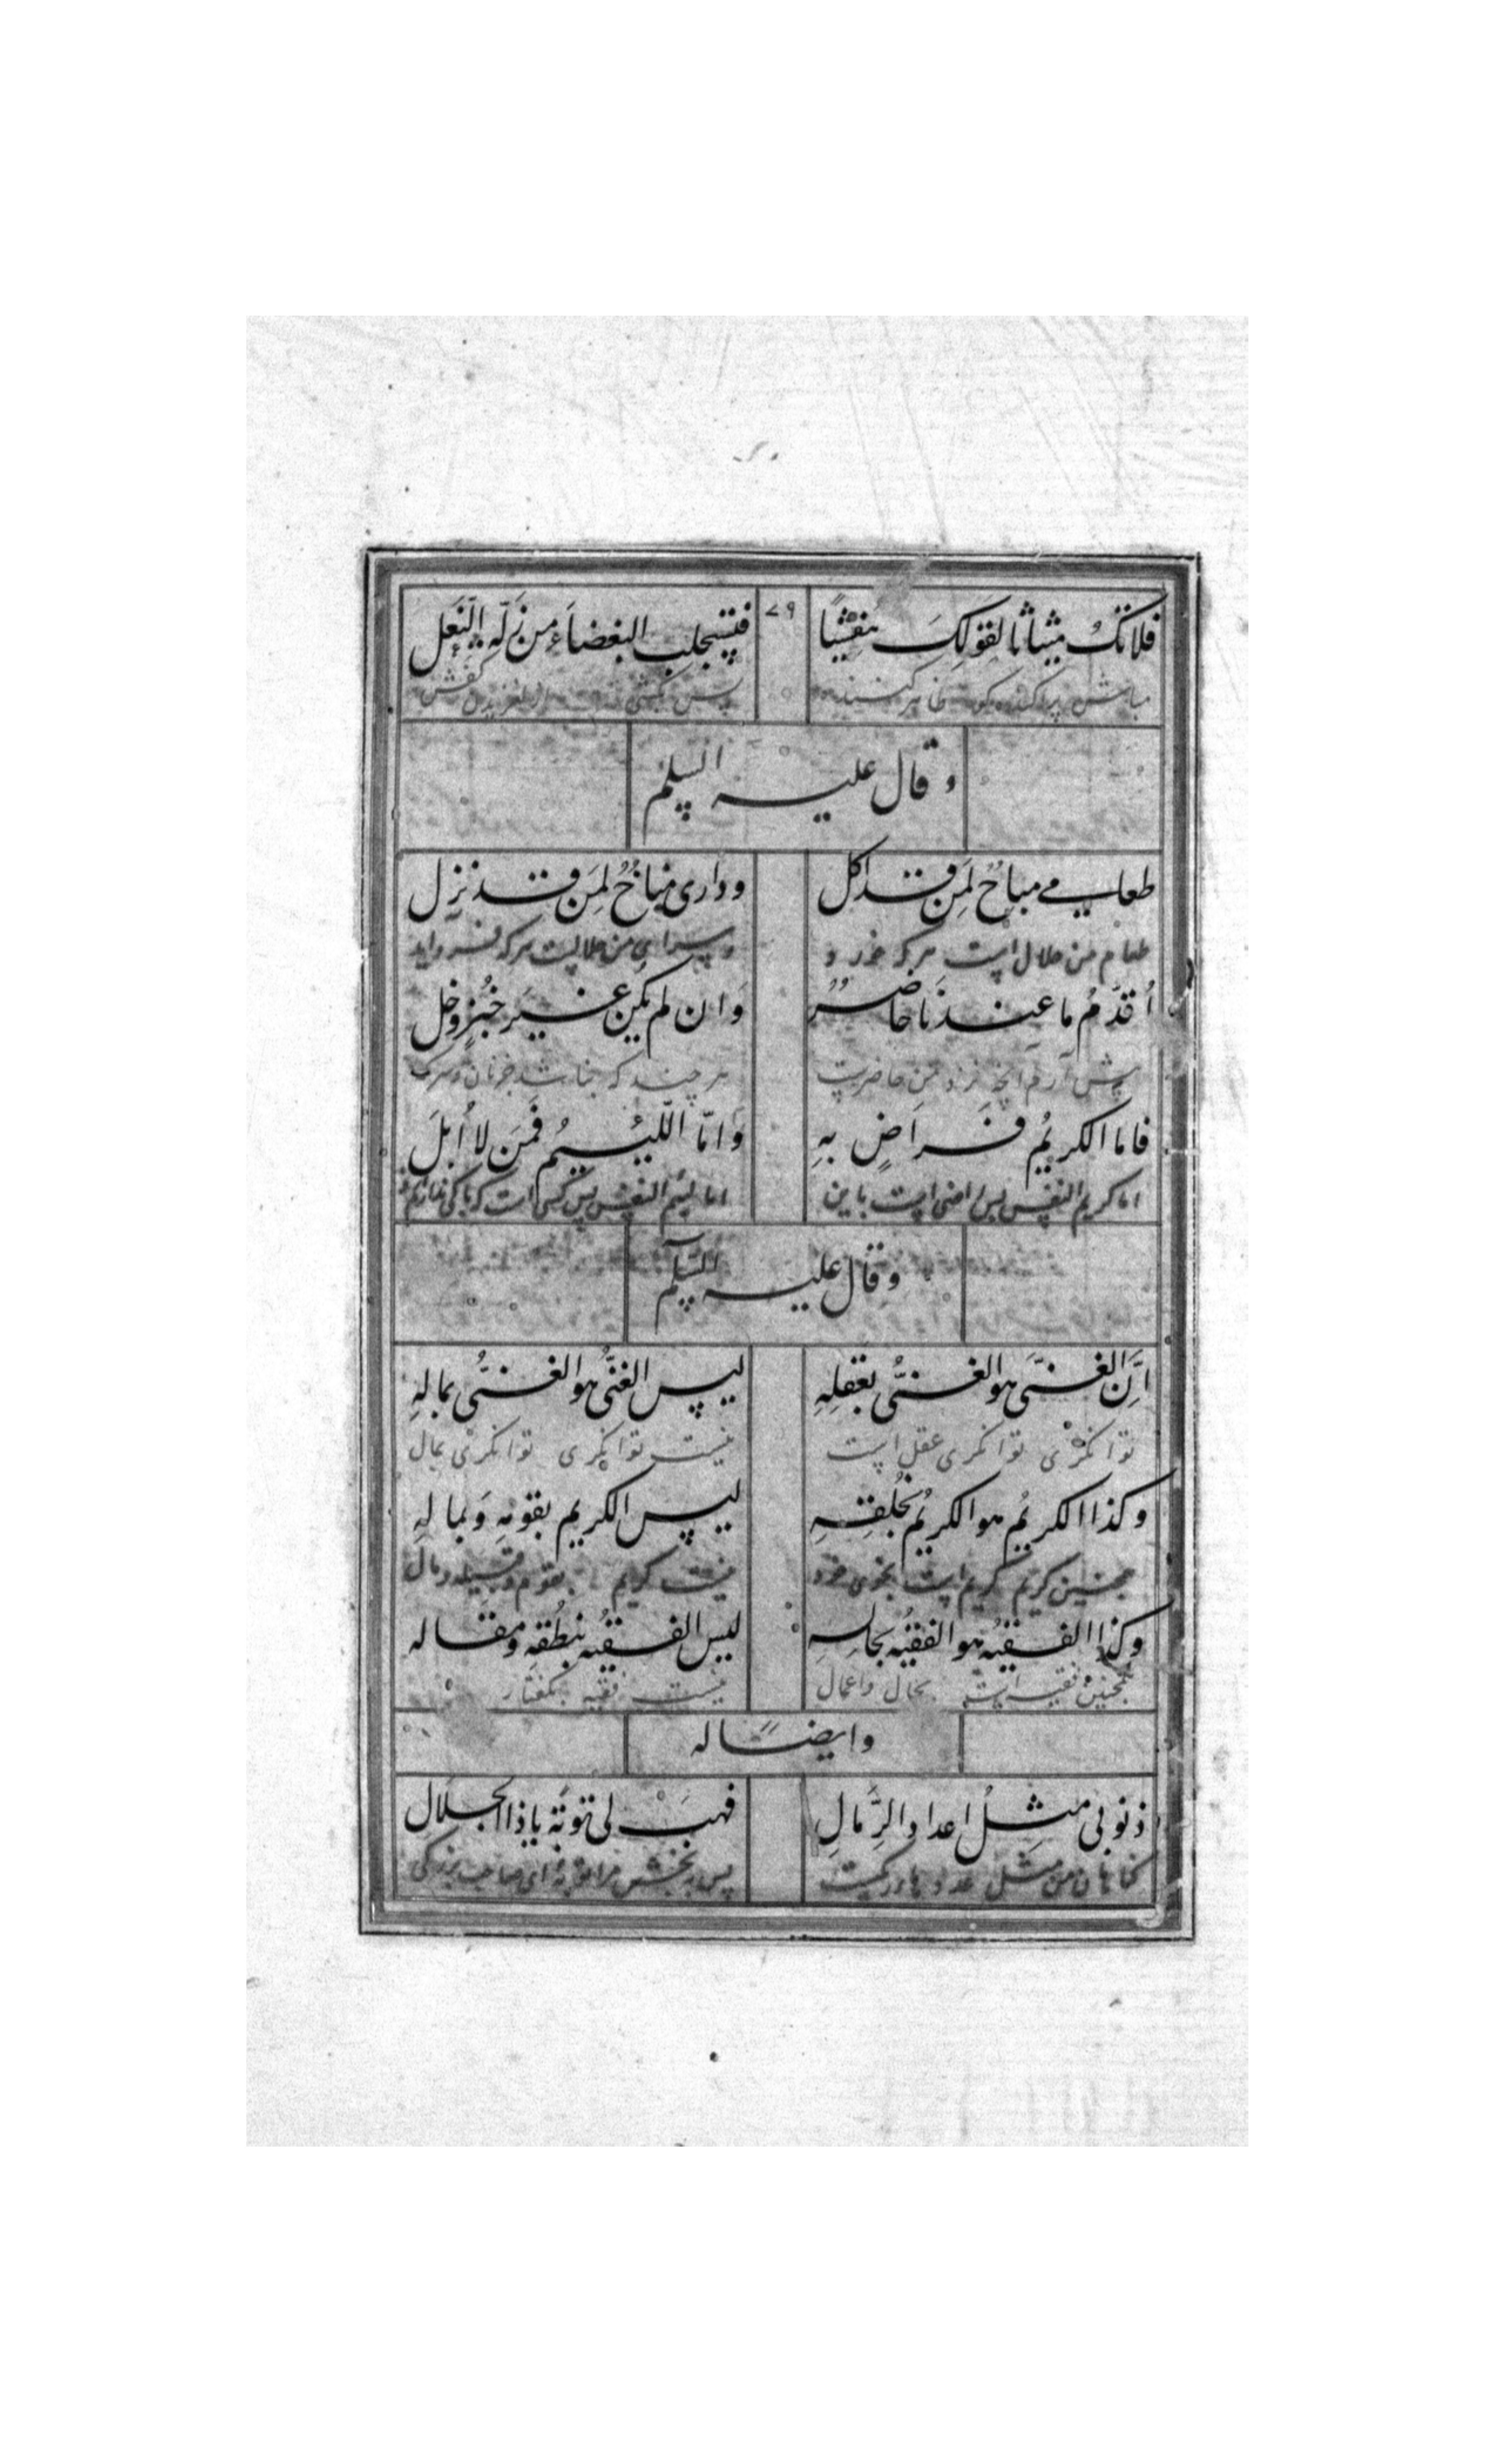 فلا تكُ مبثاثا لقولِكَ مفشيًا ۷۹ فتستجلب البغضاءَ من زلّه النَعلِ
مباش پراکنده ظاهر کننده پس از لغزیدن کفش
و قال علیه السلم
طعامی مباحُ لِمَن قد اکل و داری مناخُ لِمَن قد نزل
طعام من حلال است هر که خورد و سرای من حلالست هر که فرو اید
اُقدّمُ ما عندنا حاضرُ وَان لم یکن غیر خُبزٍ وخل
پیش آرم انچه نزد من حاضرست هر چند که نباشد جز نان و سرکه
فاما الکریمُ فراضٍ بهِ وَامّا اللّئیمُ فَمن لا اُبلَ
اما کریم النفس پس راضی است باین اما لئیم النفس پس کسی است که باکی ندارم
و قال علیه السلم
انَّ الغنیَّ هو الغنیُّ بعَقلِهِ لیس الغنیُّ هو الغنیُّ بمالهِ
توانگری توانگری عقل است نیست توانگری توانگری بمال
وکذا الکریمُ هو الکریمُ بخُلقِهِ لیس الکریم بقومهِ وَبمالهِ
همچنین کریم کریم است بخوی خود نیست کریم بقوم و قبیله و مال
وکذا الفقیهُ هو الفقیُه بحالهِ لیس الفقیه بنطُقهِ ومقاله
همچنین فقیه است بحال واعمال نیست فقیه بکفتار
وایضًا له
ذنوبی مثلُ اعداد الرِّمالِ فهبَ لی توبَة یا ذا الجلال
کناهان من مثل عدد ریکست پس ببخش مرا توبه ای صاحب بزرکی